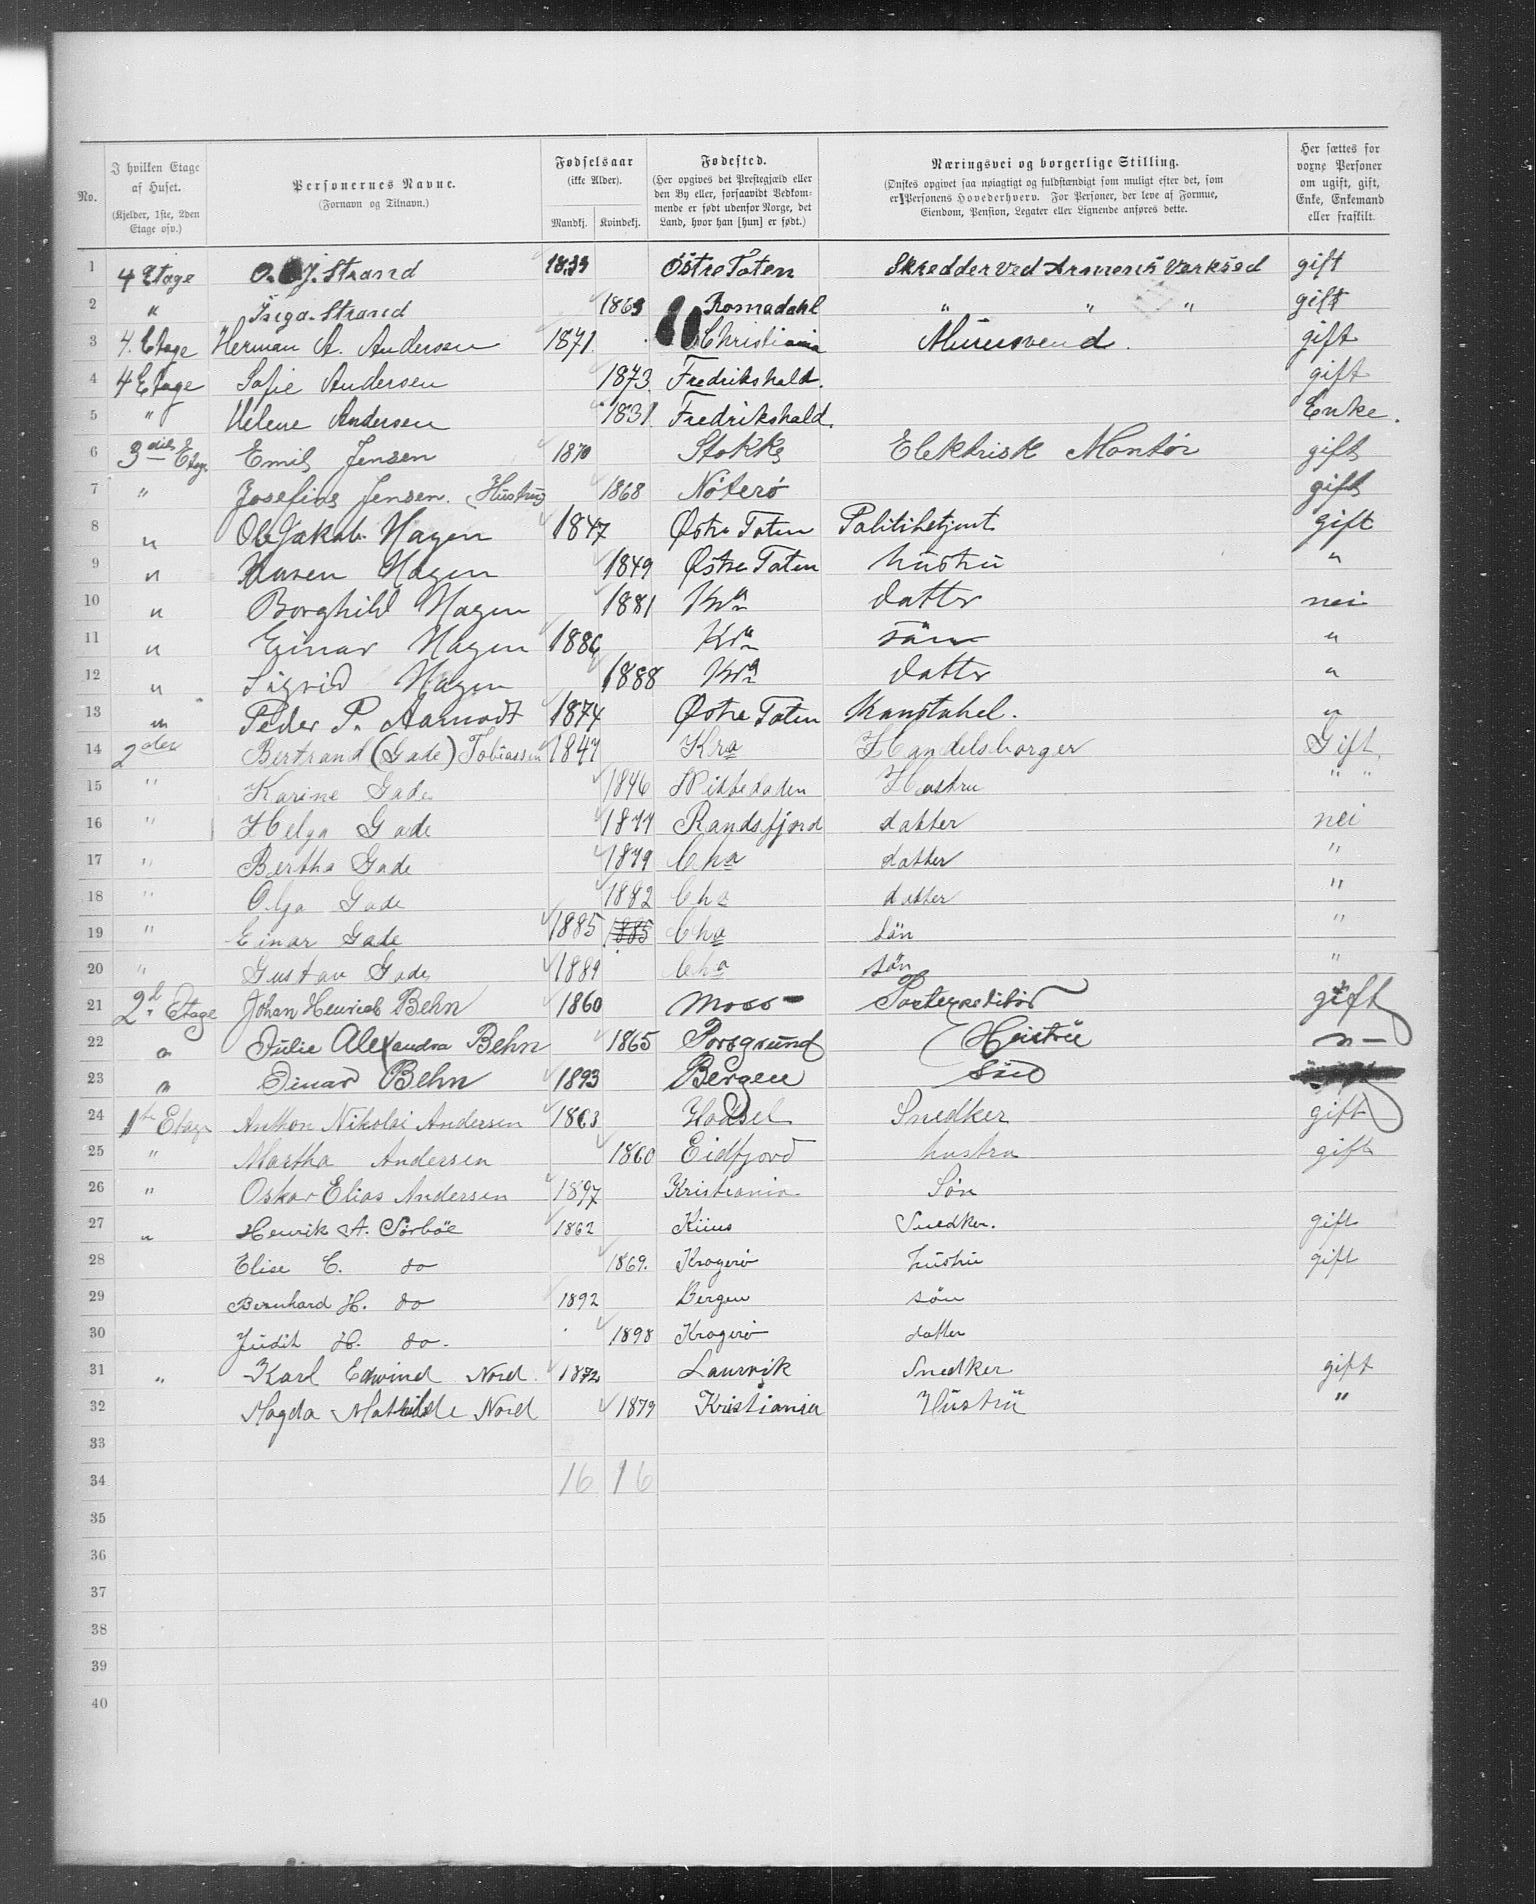 No.
I hvilken Etage af Huset.
(Kjelder, 1ste, 2den Etage osv.)
Personernes Navne.
(Fornavn og Tilnavn.)
Fødselsaar
(ikke Alder).
Mandkj. Kvindekj.
Fødested.
(Her opgives det Prestegjæld eller den By eller, forsaavidt Vedkommende er født udenfor Norge, det Land, hvor han [hun] er født.)
Næringsvei og borgerlige Stilling.
(Ønskes opgivet saa nøiagtigt og fuldstændigt som muligt efter det, som er Personens Hovederhverv. For Personer, der leve af Formue, Eiendom, Pension, Legater eller Lignende anføres dette.
Her sættes for voxne Personer om ugift, gift, Enke, Enkemand eller fraskilt.
1 4 Etage O. J. Strand Østre Toten Skredder ved gift
2 " Inga Strand 1863 Romsdahl " " " gift
3 4. Etage Herman A. Andersen 1871. Christiania Murersvend. gift
4 4 Etage Sofie Andersen 1873 Fredrikshald. gift
5 " Helene Andersen 1831 Fredrikshald. Enke.
6 3die Etage Emil Jensen 1870 Stokke Elektrisk Montør gift
7 " Josefine Jensen. (Hustru) 1868 Nøterø gift
8 " Ole Jakob Hagen 1847 Østre Toten Politibetjent gift
9 " Karen Hagen 1849 Østre Toten hustru "
10 " Borghild Hagen 1881 Kra datter nei
11 " Einar Hagen 1886 Kra søn "
12 " Sigrid Hagen 1888 Kra datter "
13 " Peder P. Aarnodt 1874 Østre Toten Konstabel. "
14 2den Bertrand (Gade) Tobiassen 1847 Kra Handelsborger Gift
15 " Karine Gade 1846 Hustru " "
16 " Helga Gade 1877 Randsfjord datter nei
17 " Bertha Gade 1879 Cha datter "
18 " Olga Gade 1882 Cha datter "
19 " Einar Gade 1885 1885 Cha Søn "
20 " Gustav Gade 1889 Cha søn "
21 2d. Etage Johan Henrich Behn 1860 Moss - Postexpeditør gift
22 " Julie Alexandra Behn 1865 Porsgrund Hustru " -
23 " Einar Behn 1893 Bergen Søn
24 1ste Etage Anthon Nikolai Andersen 1863 Hadsel Snedker gift
25 " Martha Andersen 1860 Eidfjord hustru gift
26 " Oskar Elias Andersen 1897 Kristiania Søn
27 " Henrik A. Sørbøe 1862 Snedker. gift
28 Elise C. do 1869. Kragerø hustru gift
29 Bernhard H. do 1892 Bergen søn
30 Judit H. do. 1898 Kragerø datter
31 " Karl Edwind Nord 1872 Laurvik Snedker gift
32 Magda Mathilde Nord 1879 Kristiania Hustru "
33
34 16 16
35
36
37
38
39
40